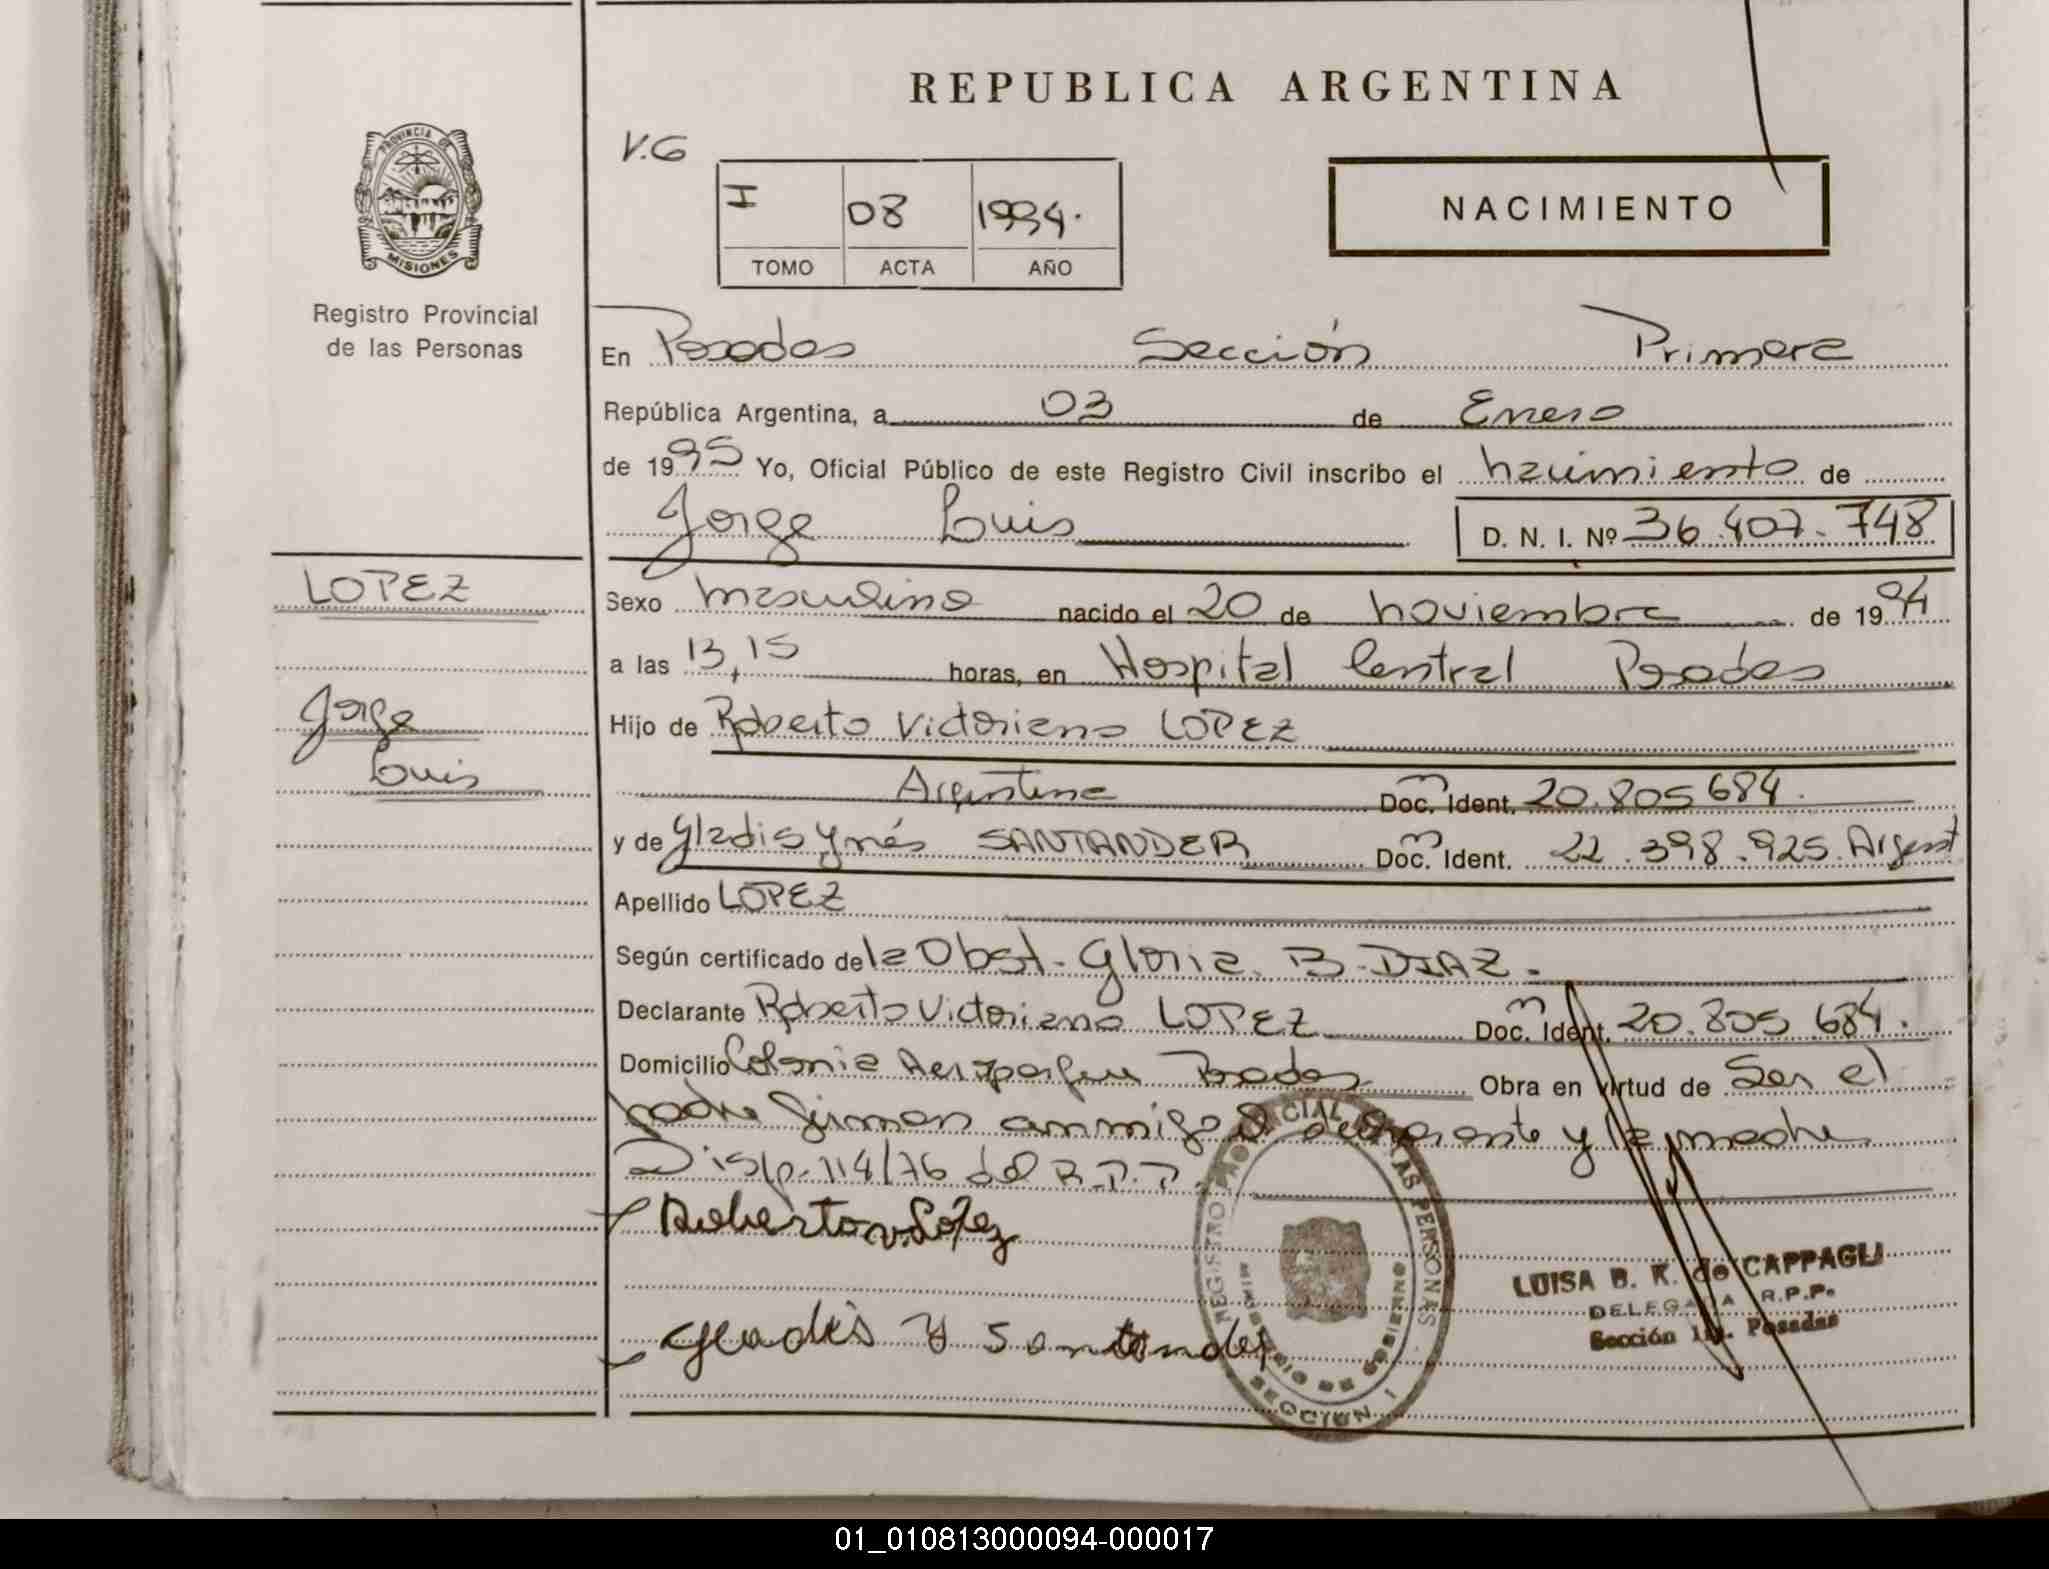 REPUBLICA ARGENTINA
PROVINCIA DE
MISIONES
Registro Provincial
de las Personas
V.G
I 08 1994.
TOMO ACTA AÑO
NACIMIENTO
En Posadas Sección Primera
República Argentina, a 03 de Enero
de 1995 Yo, Oficial Público de este Registro Civil inscribo el nacimiento de
Jorge Luis D. N. I. Nº 36.407.748
LOPEZ
Jorge
Luis
Sexo masculino nacido el 20 de noviembre de 1994
a las 13,15 horas, en Hospital Central Posadas
Hijo de Roberto Victoriano LOPEZ
Argentina Doc. Ident. 20.805684.
y de Gladis Ynés SANTANDER Doc. Ident. 22.398.925. Argent
Apellido LOPEZ
Según certificado de la Obst. Gloria B. DIAZ.
Declarante Roberto Victoriano LOPEZ Doc. Ident. 20.805.684.
Domicilio Colonia Posadas Obra en virtud de Ser el
padre firman conmigo el declarante y la madre
Disp. 114/76 del R.P.P.
Roberto v. Lopez
Gladis Y Santander
REGISTRO PROVINCIAL DE LAS PERSONAS
MINISTERIO DE GOBIERNO
SECCION 1
LUISA B. K. de CAPPAGLI
DELEGADA R.P.P.
Sección 1a. Posadas
01_010813000094-000017